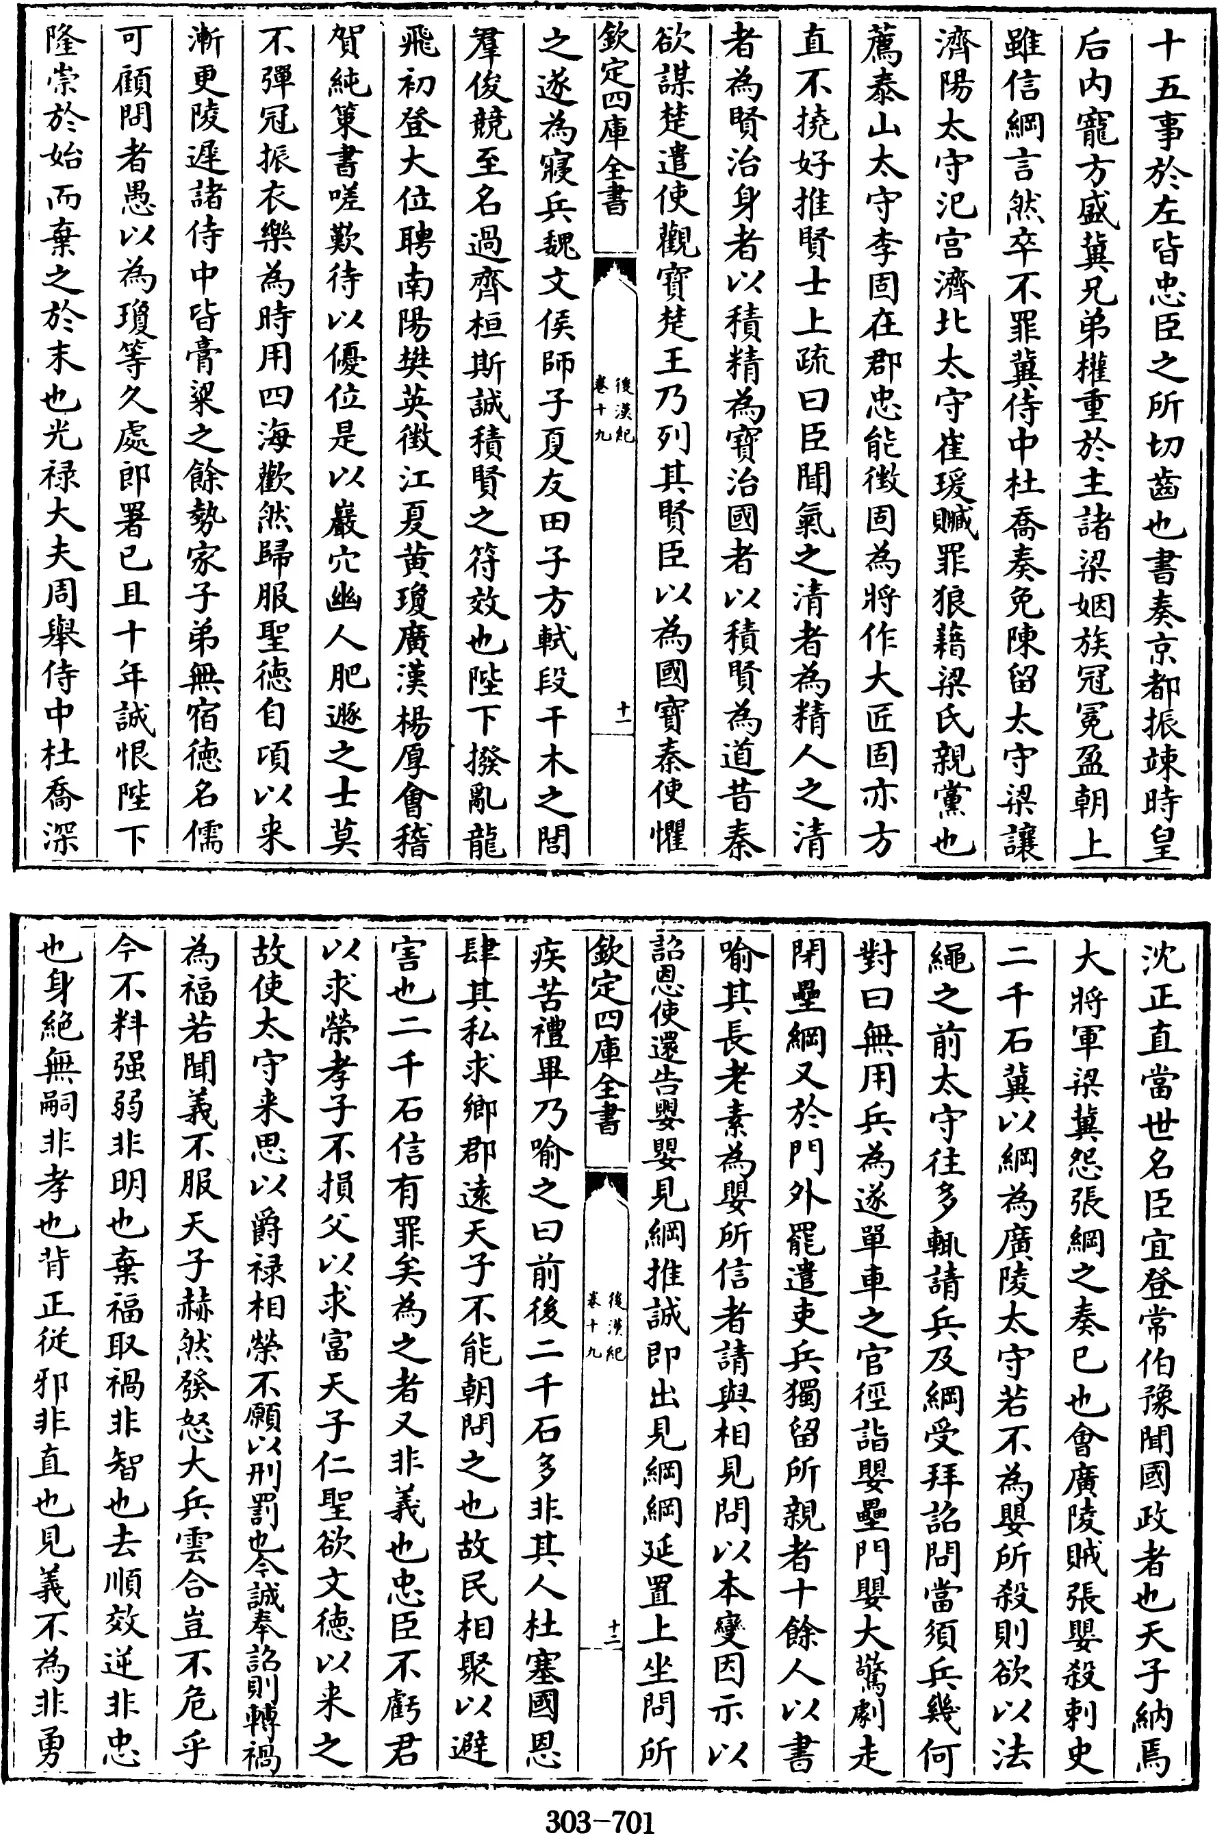 十五事於左皆忠臣之所切齒也書奏京都振竦時皇
后内寵方盛冀兄弟權重於主諸梁姻族冠冕盈朝上
雖信綱言然卒不罪冀侍中杜喬奏免陳留太守梁讓
濟陽太守汜宫濟北太守崔瑗贓罪狼藉梁氏親黨也
薦泰山太守李固在郡忠能徴固為將作大匠固亦方
直不撓好推賢士上疏曰臣聞氣之清者為精人之清
者為賢治身者以積精為寶治國者以積賢為道昔秦
欲謀楚遣使觀寶楚王乃列其賢臣以為國寶秦使懼
欽定四庫全書
後漢紀
卷十九
十一
之遂為寢兵魏文侯師子夏友田子方軾段干木之閭
羣俊競至名過齊桓斯誠積賢之符效也陛下撥亂龍
飛初登大位聘南陽樊英徴江夏黄瓊廣漢楊厚會稽
賀純策書嗟歎待以優位是以巖穴幽人肥遯之士莫
不彈冠振衣樂為時用四海歡然歸服聖徳自頃以来
漸更陵遲諸侍中皆膏粱之餘勢家子弟無宿徳名儒
可顧問者愚以為瓊等久處郎署已且十年誠恨陛下
隆崇於始而棄之於末也光禄大夫周舉侍中杜喬深
沈正直當世名臣宜登常伯豫聞國政者也天子納焉
大將軍梁冀怨張綱之奏已也會廣陵賊張嬰殺刺史
二千石冀以綱為廣陵太守若不為嬰所殺則欲以法
繩之前太守往多輒請兵及綱受拜詔問當須兵幾何
對曰無用兵為遂單車之官徑詣嬰壘門嬰大驚劇走
閉壘綱又於門外罷遣吏兵獨留所親者十餘人以書
喻其長老素為嬰所信者請與相見問以本變因示以
詔恩使還告嬰嬰見綱推誠即出見綱綱延置上坐問所
欽定四庫全書
後漢紀
卷十九
十二
疾苦禮畢乃喻之曰前後二千石多非其人杜塞國恩
肆其私求鄉郡遠天子不能朝問之也故民相聚以避
害也二千石信有罪矣為之者又非義也忠臣不虧君
以求榮孝子不損父以求富天子仁聖欲文徳以来之
故使太守来思以爵禄相榮不願以刑罰也今誠奉詔則轉禍
為福若聞義不服天子赫然發怒大兵雲合豈不危乎
今不料强弱非明也棄福取禍非智也去順效逆非忠
也身絶無嗣非孝也背正從邪非直也見義不為非勇
303-701